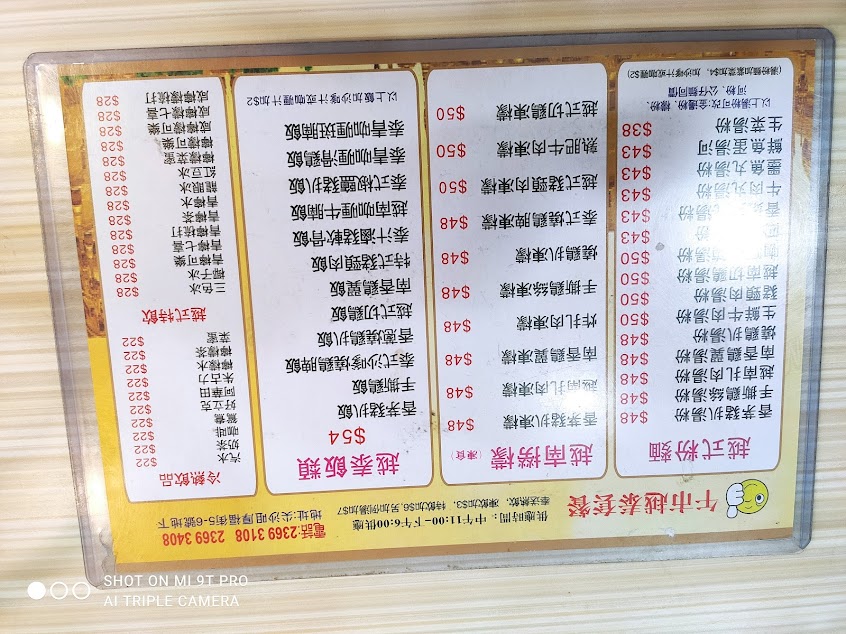 午市越泰套餐
供應時間：中午11:00-下午6:00供應
奉送熱飲，凍飲加$3，特飲加$6,另加例湯加$7
電話:2369 3108 2369 3408
地址:尖沙咀厚福街5-6號地下
越式粉麵
香茅豬扒湯粉 $48
手撕雞絲湯粉 $48
越南扎肉湯粉 $48
南香雞翼湯粉 $48
燒雞扒湯粉 $48
生鮮牛肉湯粉 $50
豬頸肉湯粉 $50
越南切雞湯粉 $50
湯粉 $50
粉 $43
湯粉 $43
牛肉丸湯粉 $43
墨魚丸湯粉 $43
鮮魚蛋湯河 $43
生菜湯粉 $38
以上湯粉可改:金邊粉、檬粉、
河粉、公仔麵同價
(湯粉麵加菜加$4、加沙嗲汁或咖喱$2)
越南撈檬 (凍食)
香茅豬扒凍檬 $48
越南扎肉凍檬 $48
南香雞翼凍檬 $48
炸扎肉凍檬 $48
手撕雞絲凍檬 $48
燒雞扒凍檬 $48
泰式燒雞脾凍檬 $48
越式豬頸肉凍檬 $50
熟肥牛肉凍檬 $50
越式切雞凍檬 $50
越泰飯類
$54
香茅豬扒飯
手撕雞飯
泰式沙嗲燒雞脾飯
香蔥燒雞扒飯
越式切雞飯
南香雞翼飯
特式豬頸肉飯
泰汁滷豬軟骨飯
越南咖喱牛腩飯
泰式椒鹽豬扒飯
泰青咖喱滑雞飯
泰青咖喱斑腩飯
以上飯加沙嗲汁或咖喱汁加$2
冷熱飲品
汽水 $22
奶茶 $22
咖啡 $22
鴛鴦 $22
好立克 $22
阿華田 $22
朱古力 $22
檸檬水 $22
檸檬茶 $22
菜蜜 $22
越式特飲
三色冰 $28
椰子冰 $28
青檸可樂 $28
青檸七喜 $28
青檸梳打 $28
青檸茶 $28
青檸水 $28
龍眼冰 $28
紅豆冰 $28
檸檬菜蜜 $28
檸檬可樂 $28
咸檸檬可樂 $28
咸檸檬七喜 $28
咸檸檬梳打 $28
SHOT ON MI 9T PRO
AI TRIPLE CAMERA